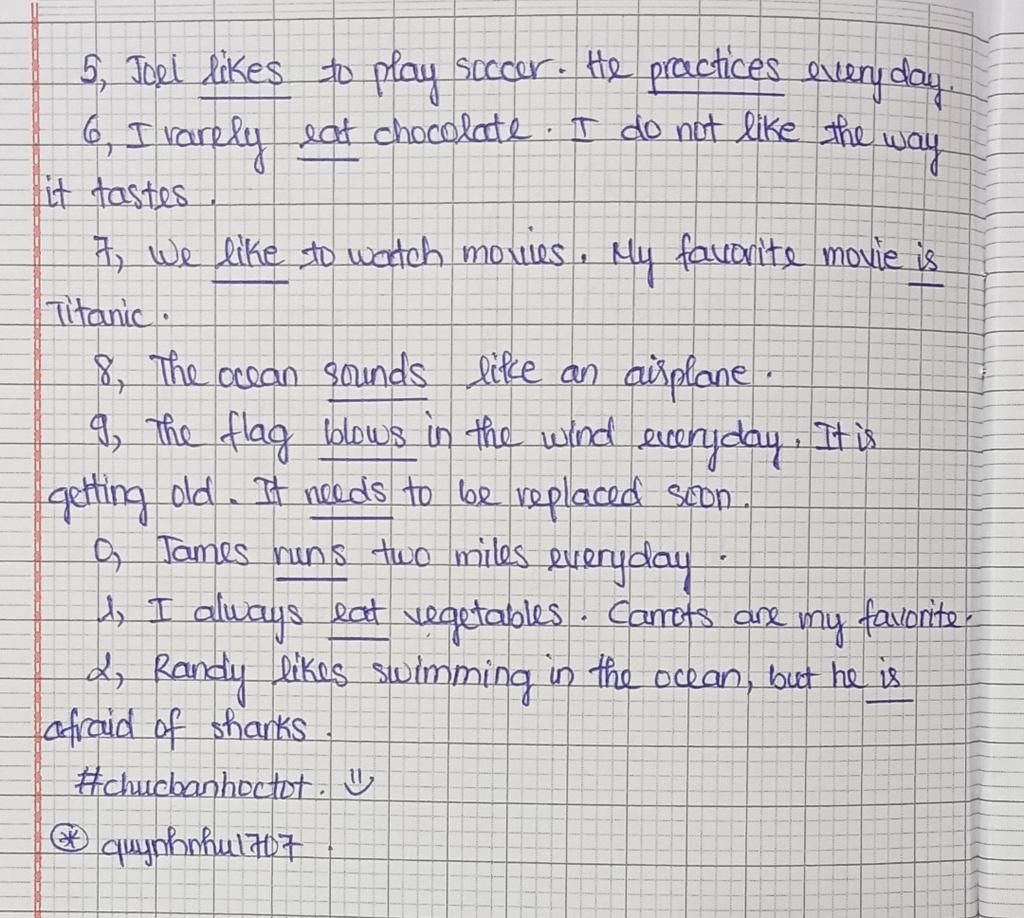 5, Joel likes to play soccer. He practices everyday.
6, I rarely eat chocolate. I do not like the way
it tastes.
7, We like to watch movies. My favorite movie is
Titanic.
8, The ocean sounds like an airplane.
9, The flag blows in the wind everyday. It is
getting old. It needs to be replaced soon.
0, James runs two miles everyday.
1, I always eat vegetables. Carrots are my favorite.
2, Randy likes swimming in the ocean, but he is
afraid of sharks.
#chucbanhoctot.
* quynhnhu1707.